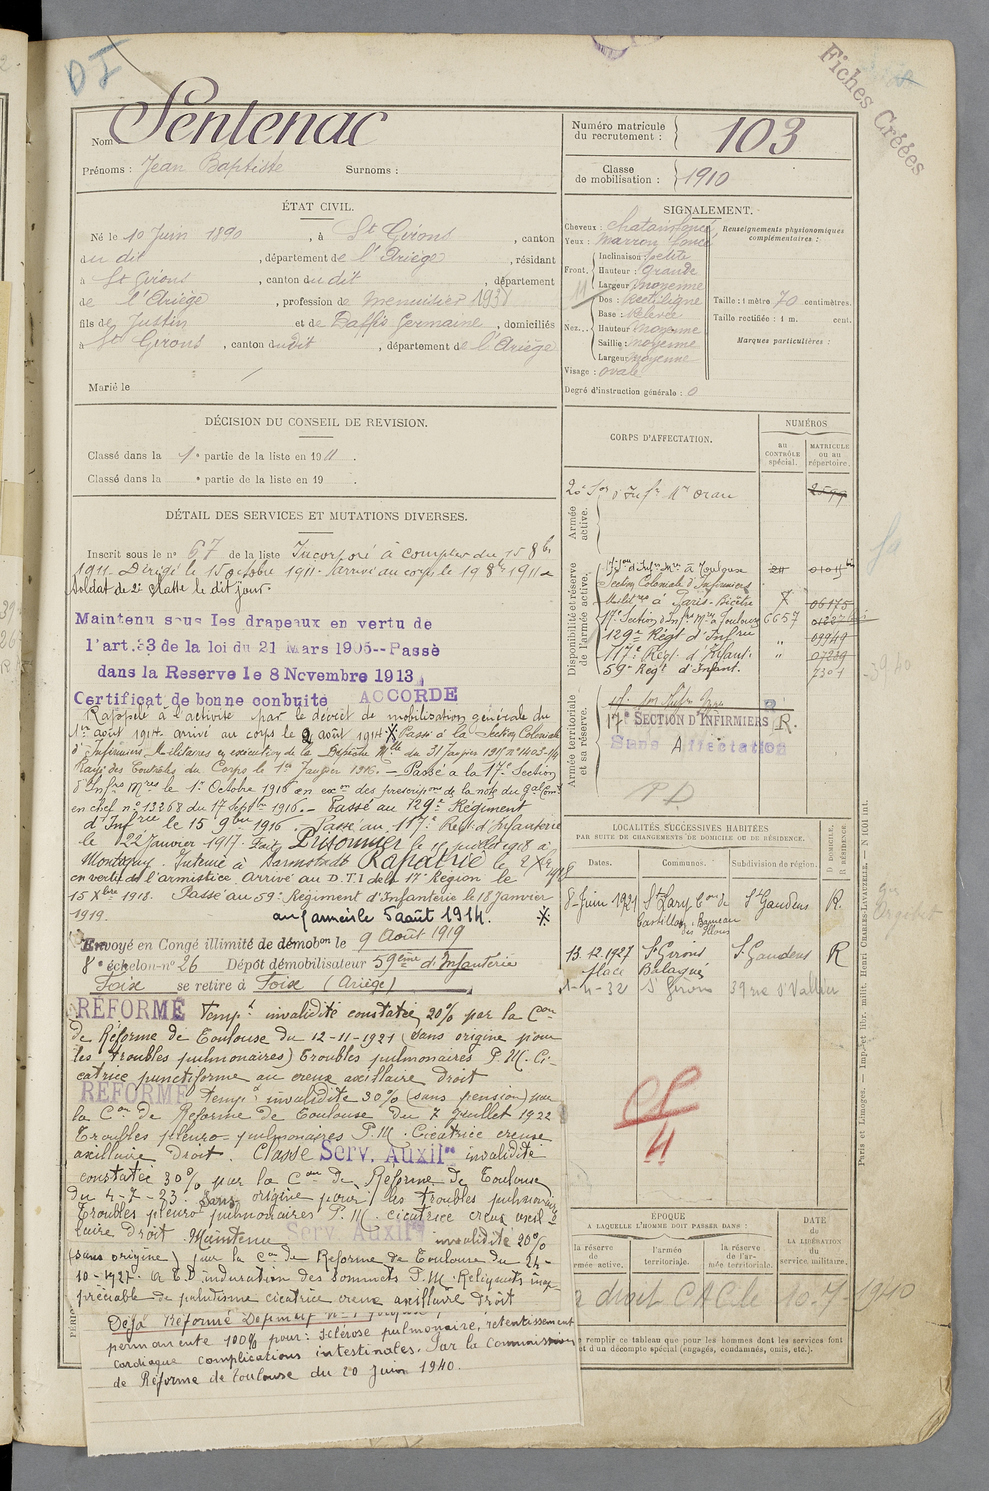 DI
Fiches Créées
Nom Sentenac
Prénoms : Jean Baptiste Surnoms :
Numéro matricule du recrutement : 103
Classe de mobilisation : 1910
ÉTAT CIVIL.
Né le 10 Juin 1890, à St Girons, canton
du dit, département de l'Ariège, résidant
à St Girons, canton du dit, département
de l'Ariège, profession de menuisier 1938
fils de Justin et de Daffis Germaine, domiciliés
à St Girons, canton du dit, département de l'Ariège
Marié le
SIGNALEMENT.
Cheveux : chatain foncé
Yeux : marron foncé
Front, Inclinaison petite
Hauteur : grande
Largeur moyenne
Nez Dos : Rectiligne
Base : Relevée
Hauteur moyenne
Saillie : moyenne
Largeur moyenne
Visage : ovale
Renseignements physionomiques complémentaires :
Taille : 1 mètre 70 centimètres.
Taille rectifiée : 1 m. cent.
Marques particulières :
Degré d'instruction générale : 0
DÉCISION DU CONSEIL DE REVISION.
Classé dans la 1e partie de la liste en 1911.
Classé dans la e partie de la liste en 19 .
DÉTAIL DES SERVICES ET MUTATIONS DIVERSES.
Inscrit sous le no 67 de la liste Incorporé à compter du 15 8bre
1911. Dirigé le 15 octobre 1911. Arrivé au corps le 19 8bre 1911 et
Soldat de 2e classe le dit jour.
Maintenu sous les drapeaux en vertu de
l'art.33 de la loi du 21 Mars 1905--Passé
dans la Reserve le 8 Novembre 1913
Certificat de bonne conbuite ACCORDE
Rappelé à l'activité par le décret de mobilisation générale du
1er août 1914. arrivé au corps le 2 août 1914 Passé à la Section Coloniale
d'Infirmiers Militaires en exécution de la Dépêche Mlle du 31 Janvier 1915 no 1403-1/4
Rayé des Contrôles du Corps le 1er Janvier 1916. - Passé à la 17e Section
d'Infres Mres le 1er Octobre 1916 en exon des prescripons de la note du Gal Comt
en chef no 13268 du 17 Septbre 1916. - Passé au 129e Régiment
d'Infrie le 15 9bre 1916. Passé au 117e Régt d'Infanterie
le 22 Janvier 1917. Fait Prisonnier le 15 juillet 1918 à
Interné à Darmstadt Rapatrié le 2 Xbre 1918
en vertu de l'armistice, arrivé au D.T.I de la 17e Région le
15 Xbre 1918. Passé au 59e Régiment d'Infanterie le 18 Janvier
1919. aux armées le 5 août 1914.
Envoyé en Congé illimité de démobon le 9 Août 1919
8e échelon no 26 Dépôt démobilisateur 59eme d'Infanterie
Foix se retire à Foix (Ariège)
RÉFORMÉ Tempt invalidité constatée 20% par la Con
de Réforme de Toulouse du 12-11-1921 (sans origine pour
les troubles pulmonaires) Troubles pulmonaires P.M. Ci-
catrice punctiforme au creux axillaire droit
REFORMÉ tempt invalidité 30% (sans pension) par
la Con de Réforme de Toulouse du 7 Juillet 1922
Troubles pleuro-pulmonaires P.M. Cicatrice creuse
axillaire droit. Classé Serv. Auxilre invalidité
constatée 30% par la Con de Réforme de Toulouse
du 4-7-23. Sans origine pour les troubles pulmonaires
Troubles pleuro pulmonaires P.M. cicatrice creux axil-
laire droit. Maintenu Serv. Auxilre invalidité 20%
(sans origine) par la Con de Réforme de Toulouse du 24-
10-1927. induration des sommets P.M. Reliquats inap-
préciable de paludisme cicatrice creux axillaire droit
Déjà Réformé Définitif
permanente 100% pour : sclérose pulmonaire, retentissement
cardiaque complications intestinales. Par la Commission
de Réforme de Toulouse du 20 Juin 1940.
CORPS D'AFFECTATION.
NUMÉROS
au contrôle spécial.
matricule ou au répertoire.
Armée active.
2e Son d'Infres Mres Oran 2599
Disponibilité et réserve de l'armée active.
17e Son d'Infres Mres à Toulouse
Section Coloniale d'Infirmiers
Militres à Paris-Bicêtre 06175
17e Section d'Infres Mres à Toulouse 6657
129e Régt d'Infrie " 09949
117e Régt d'Infant. " 07239
59e Régt d'Infant. 7307
Armée territoriale et sa réserve.
17e SECTION D'INFIRMIERS R.
Sans Affectation
PD
39 40
LOCALITÉS SUCCESSIVES HABITÉES
PAR SUITE DE CHANGEMENTS DE DOMICILE OU DE RÉSIDENCE.
Dates. Communes. Subdivision de région. D. DOMICILE. R. RÉSIDENCE
8 Juin 1921 St Lary Con de Castillon St Gaudens R.
13.12.1927 St Girons St Gaudens R
place Balagué
1-4-32 St Girons 39 rue St Vallier
ÉPOQUE
A LAQUELLE L'HOMME DOIT PASSER DANS :
la réserve de l'armée active.
l'armée territoriale.
la réserve de l'armée territoriale.
DATE de LA LIBÉRATION du service militaire.
droit C A C le 10-7-1940
remplir ce tableau que pour les hommes dont les services font
et d'un décompte spécial (engagés, condamnés, omis, etc.).
Paris et Limoges. — Imp. et libr. milit. Henri Charles-Lavauzelle. — N 1031 int.